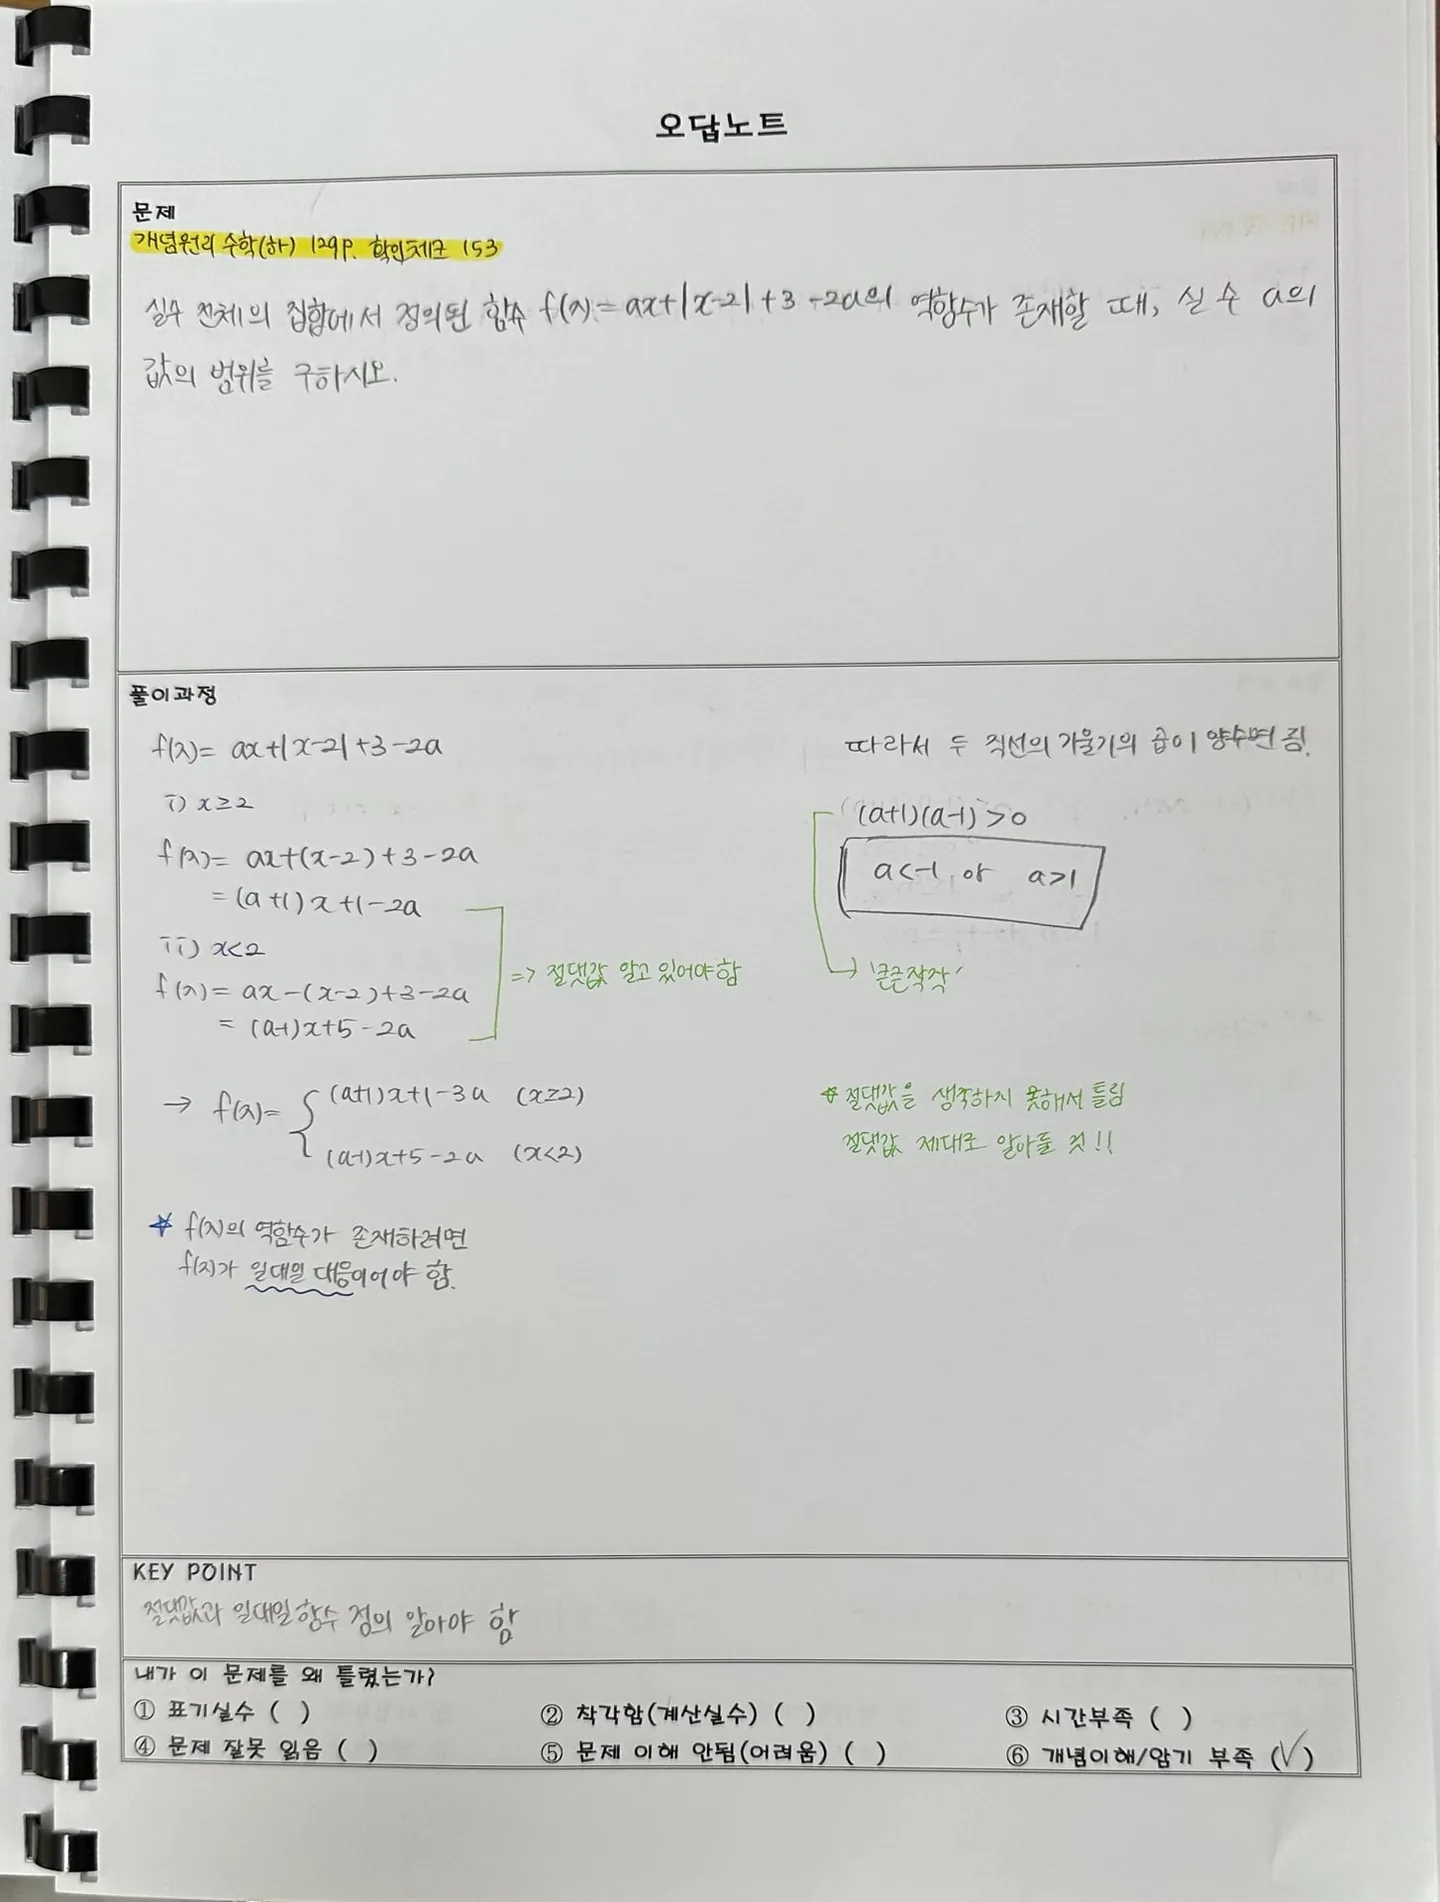 오답노트
문제
개념원리 수학(하) 129p. 확인체크 153
실수 전체의 집합에서 정의된 함수 f(x)=ax+|x-2|+3-2a의 역함수가 존재할 때, 실수 a의
값의 범위를 구하시오.
풀이과정
f(x)= ax+|x-2|+3-2a
i) x≥2
f(x)= ax+(x-2)+3-2a
= (a+1)x+1-2a
ii) x<2
f(x)= ax-(x-2)+3-2a
= (a-1)x+5-2a
=> 절댓값 알고 있어야함
→ f(x)= { (a+1)x+1-3a (x≥2)
(a-1)x+5-2a (x<2)
☆ f(x)의 역함수가 존재하려면
f(x)가 일대일 대응이어야 함.
따라서 두 직선의 기울기의 곱이 양수면 됨.
(a+1)(a-1)>0
a<-1 or a>1
→ '큰큰작작'
☆절댓값을 생각하지 못해서 틀림
절댓값 제대로 알아둘 것!!
KEY POINT
절댓값과 일대일함수 정의 알아야 함
내가 이 문제를 왜 틀렸는가?
① 표기실수 ( ) ② 착각함(계산실수) ( ) ③ 시간부족 ( )
④ 문제 잘못 읽음 ( ) ⑤ 문제 이해 안됨(어려움) ( ) ⑥ 개념이해/암기 부족 (✓)